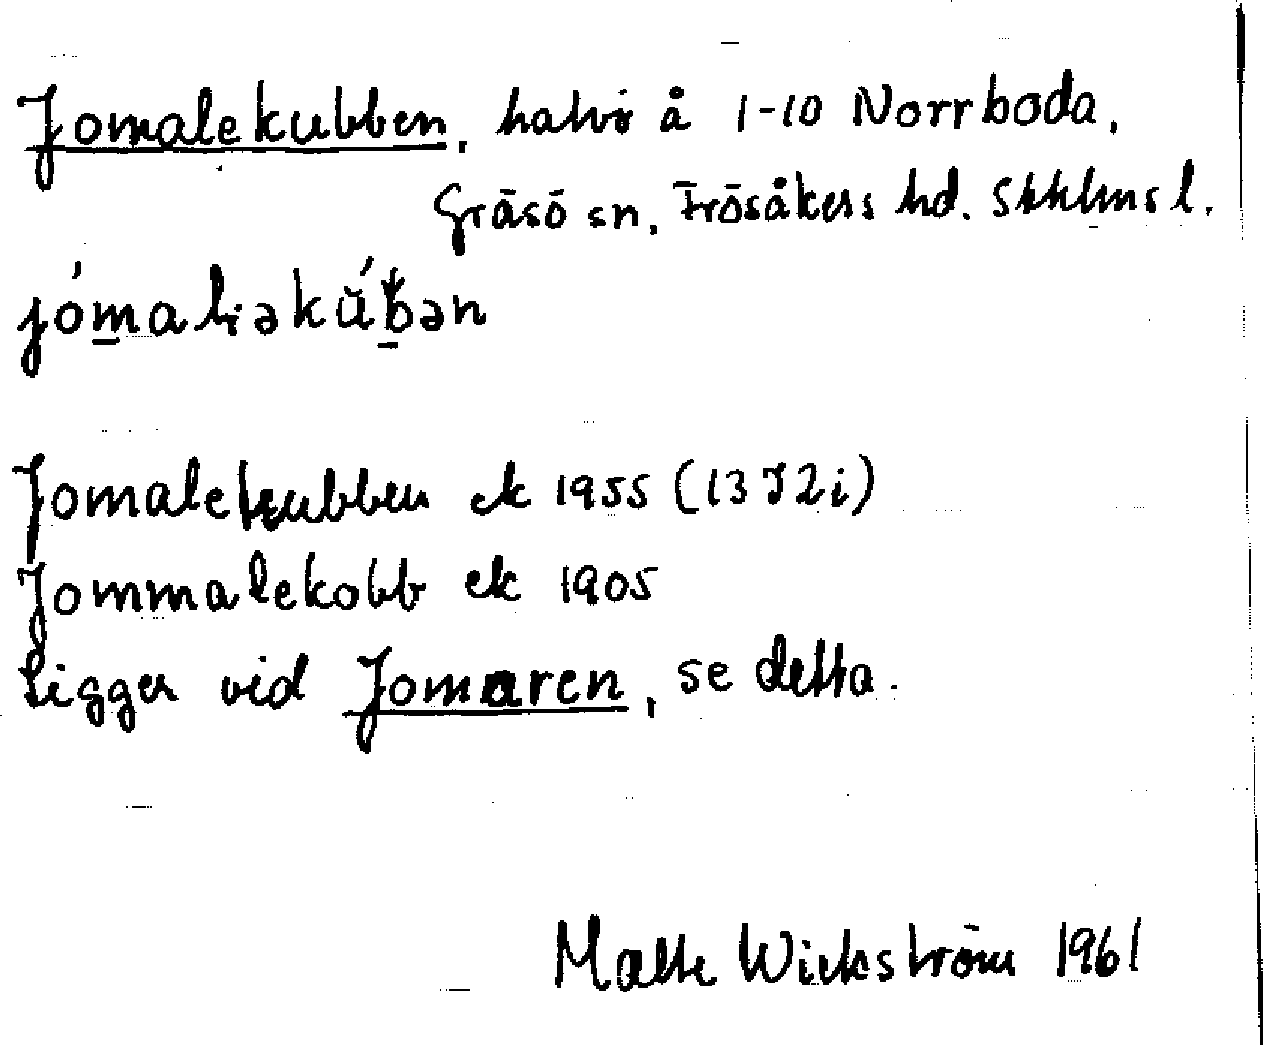 Jomalekubben, halvö å 1-10 Norrboda,
Gräsö sn, Frösåkers hd. Sthlms l.
Jomalekubben ek 1955 (13 I 2 i)
Jommalekobb ek 1905
ligger vid Jomaren, se detta.
Wickström 1961